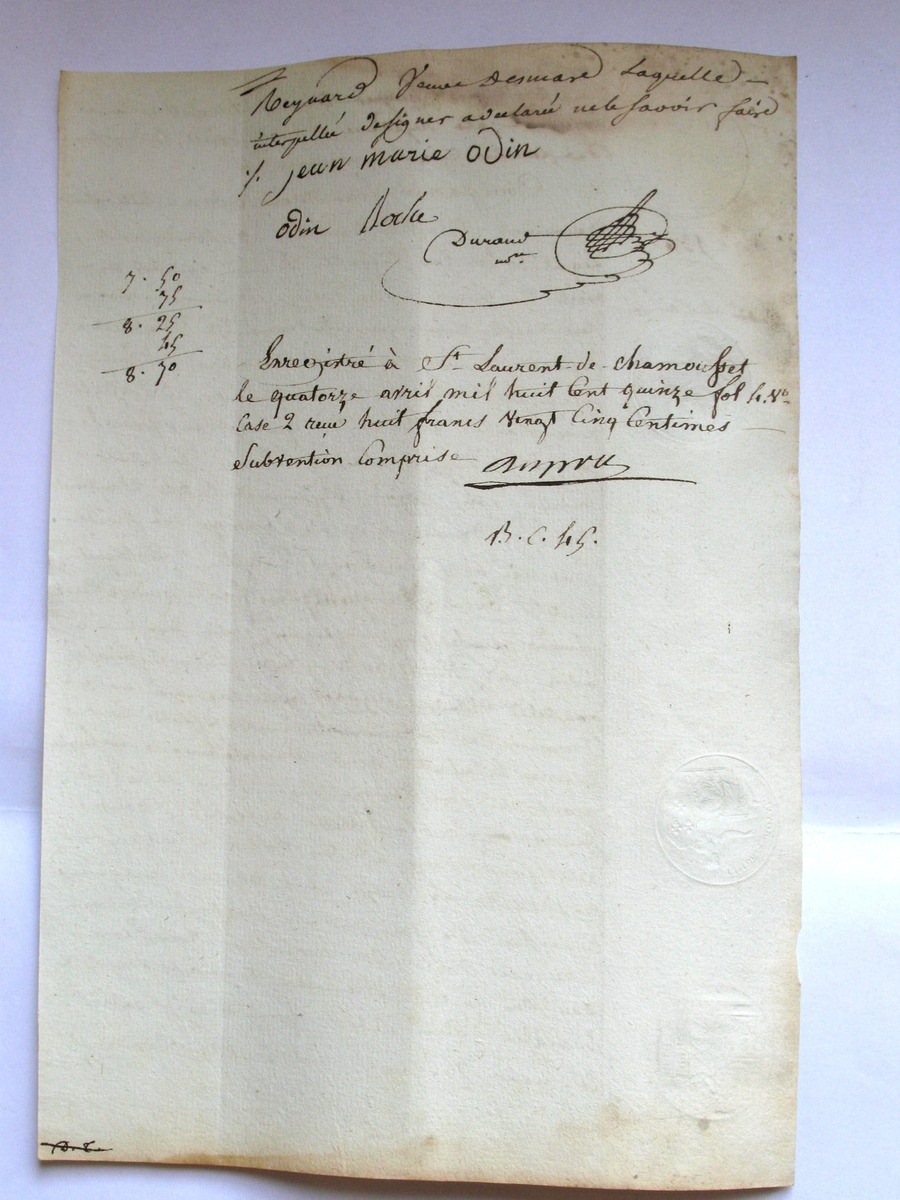 Reynard veuve Desmard Laquelle
interpellée de signer a declaré ne le savoir faire
jean marie odin
odin Roche
Durand
nore
7. 50
75
8. 25
45
8. 70
Enregistré à St. Laurent-de-chamousset
le quatorze avril mil huit Cent quinze fol 4. Vo.
Case 2 reçu huit francs vingt Cinq Centimes
Subvention Comprise
B. C. 45.